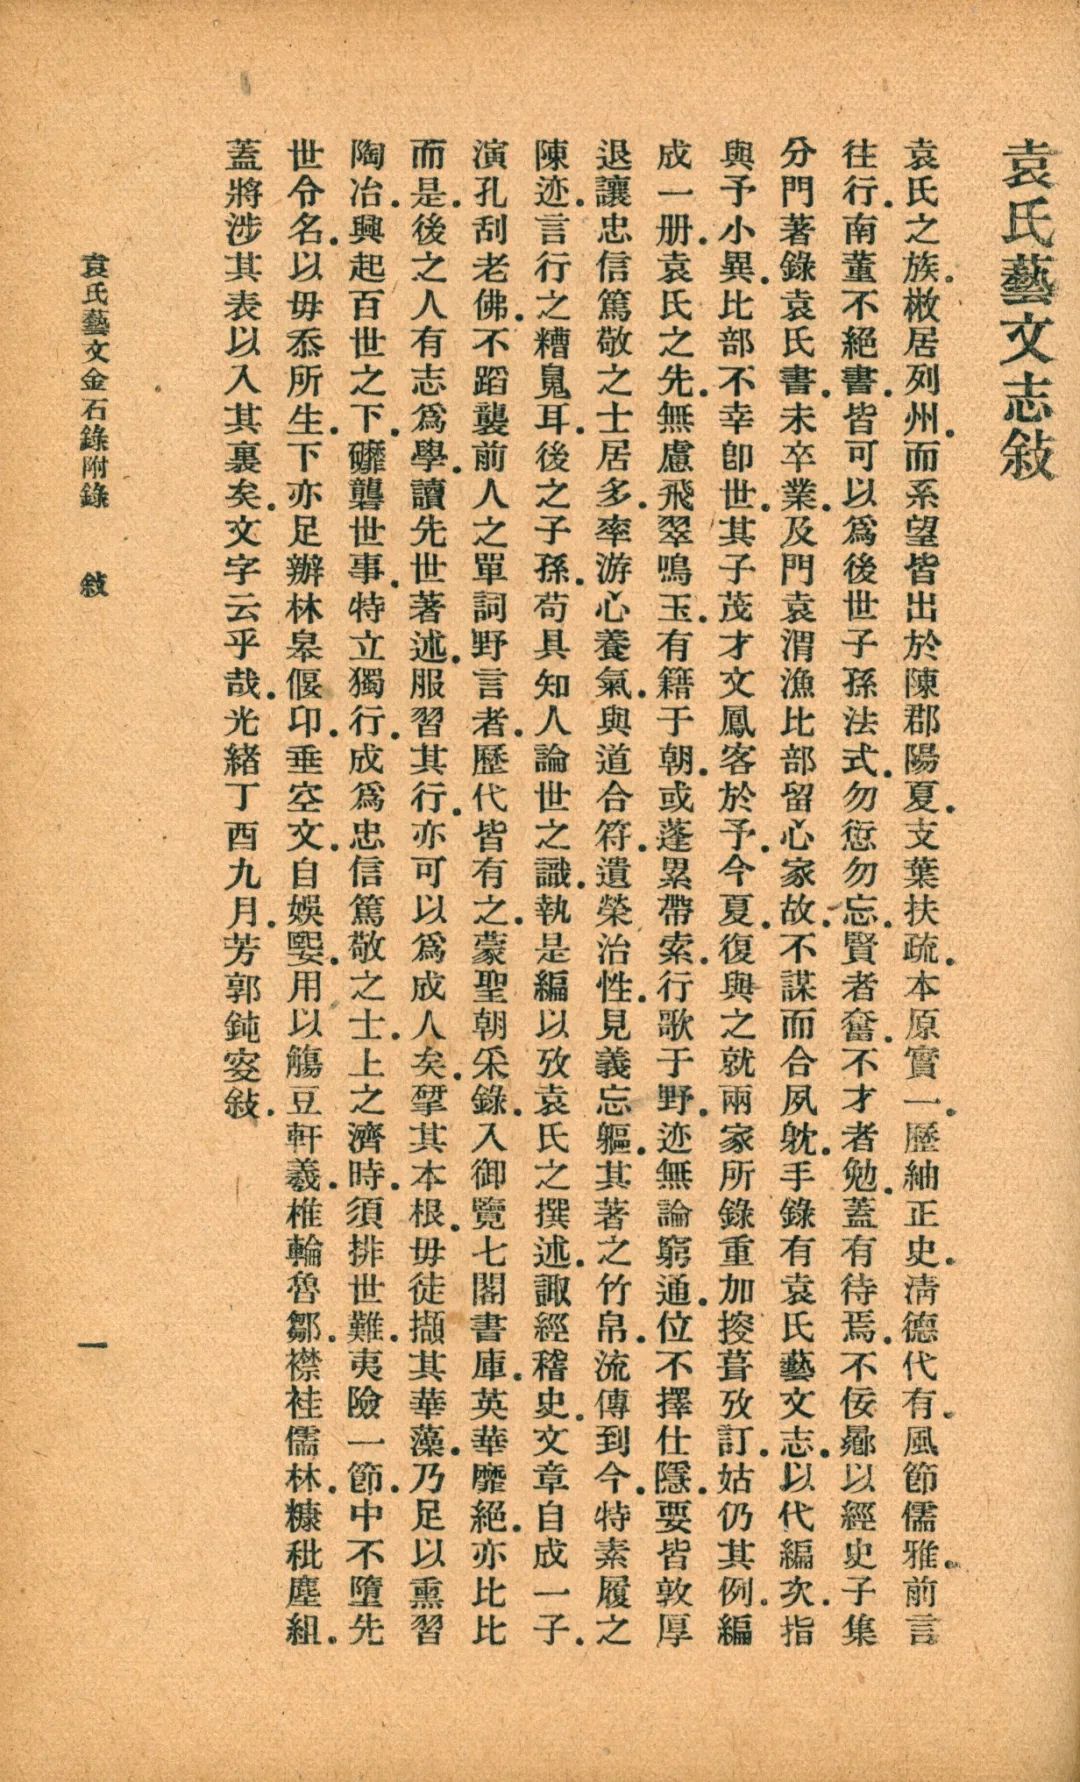 袁氏藝文志敍
袁氏之族。楸居列州。而系望皆出於陳郡陽夏。支葉扶疏。本原實一。歷紬正史。淸德代有。風節儒雅。前言
往行。南董不絕書。皆可以爲後世子孫法式。勿愆勿忘。賢者奮。不才者勉。蓋有待焉。不佞曏以經史子集
分門著錄袁氏書。未卒業。及門袁渭漁比部留心家故。不謀而合。夙躭手錄有袁氏藝文志。以代編次。指
與予小異。比部不幸卽世。其子茂才文鳳客於予。今夏。復與之就兩家所錄重加揬葺攷訂。姑仍其例。編
成一册。袁氏之先。無慮飛翠鳴玉。有籍于朝。或蓬累帶索。行歌于野。迹無論窮通。位不擇仕隱。要皆敦厚
退讓忠信篤敬之士居多。率游心養氣。與道合符。遺榮治性。見義忘軀。其著之竹帛。流傳到今。特素履之
陳迹。言行之糟䰟耳。後之子孫。苟具知人論世之識。執是編以攷袁氏之撰述。諏經稽史。文章自成一子。
演孔刮老佛。不蹈襲前人之單詞野言者。歷代皆有之。蒙聖朝采錄。入御覽七閣書庫。英華靡絕。亦比比
而是。後之人有志爲學。讀先世著述。服習其行。亦可以爲成人矣。揅其本根。毋徒擷其華藻。乃足以熏習
陶冶。興起百世之下。礲礱世事。特立獨行。成爲忠信篤敬之士。上之濟時。須排世難。夷險一節。中不墮先
世令名。以毋忝所生。下亦足辦林皋偃卬。垂空文。自娛娶。用以觴豆軒羲。椎輪魯鄒。襟袿儒林。糠秕塵組。
蓋將涉其表以入其裏矣。文字云乎哉。光緖丁酉九月。芳郭鈍叜敍。
袁氏藝文金石錄附錄　敍
一